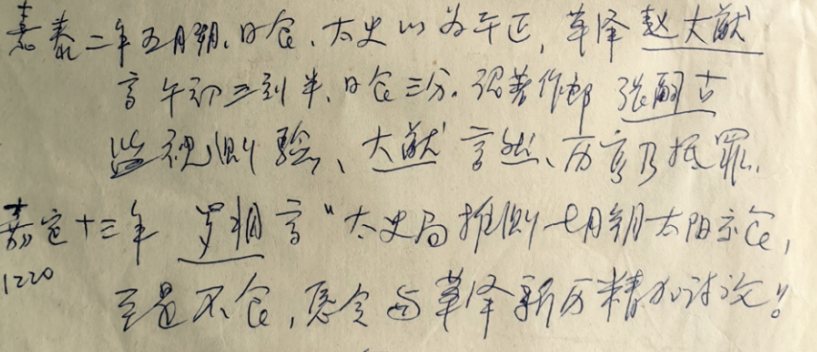 嘉泰二年五月朔，日食，太史以为午正，草泽赵大猷
言午初三刻半，日食三分。诏著作郎张嗣古
监视测验，大猷言然，历官乃抵罪。
嘉定十三年 罗相言“太史局推测七月朔太阳交食，
1220
至是不食，愿令与草泽新历精加讨论”